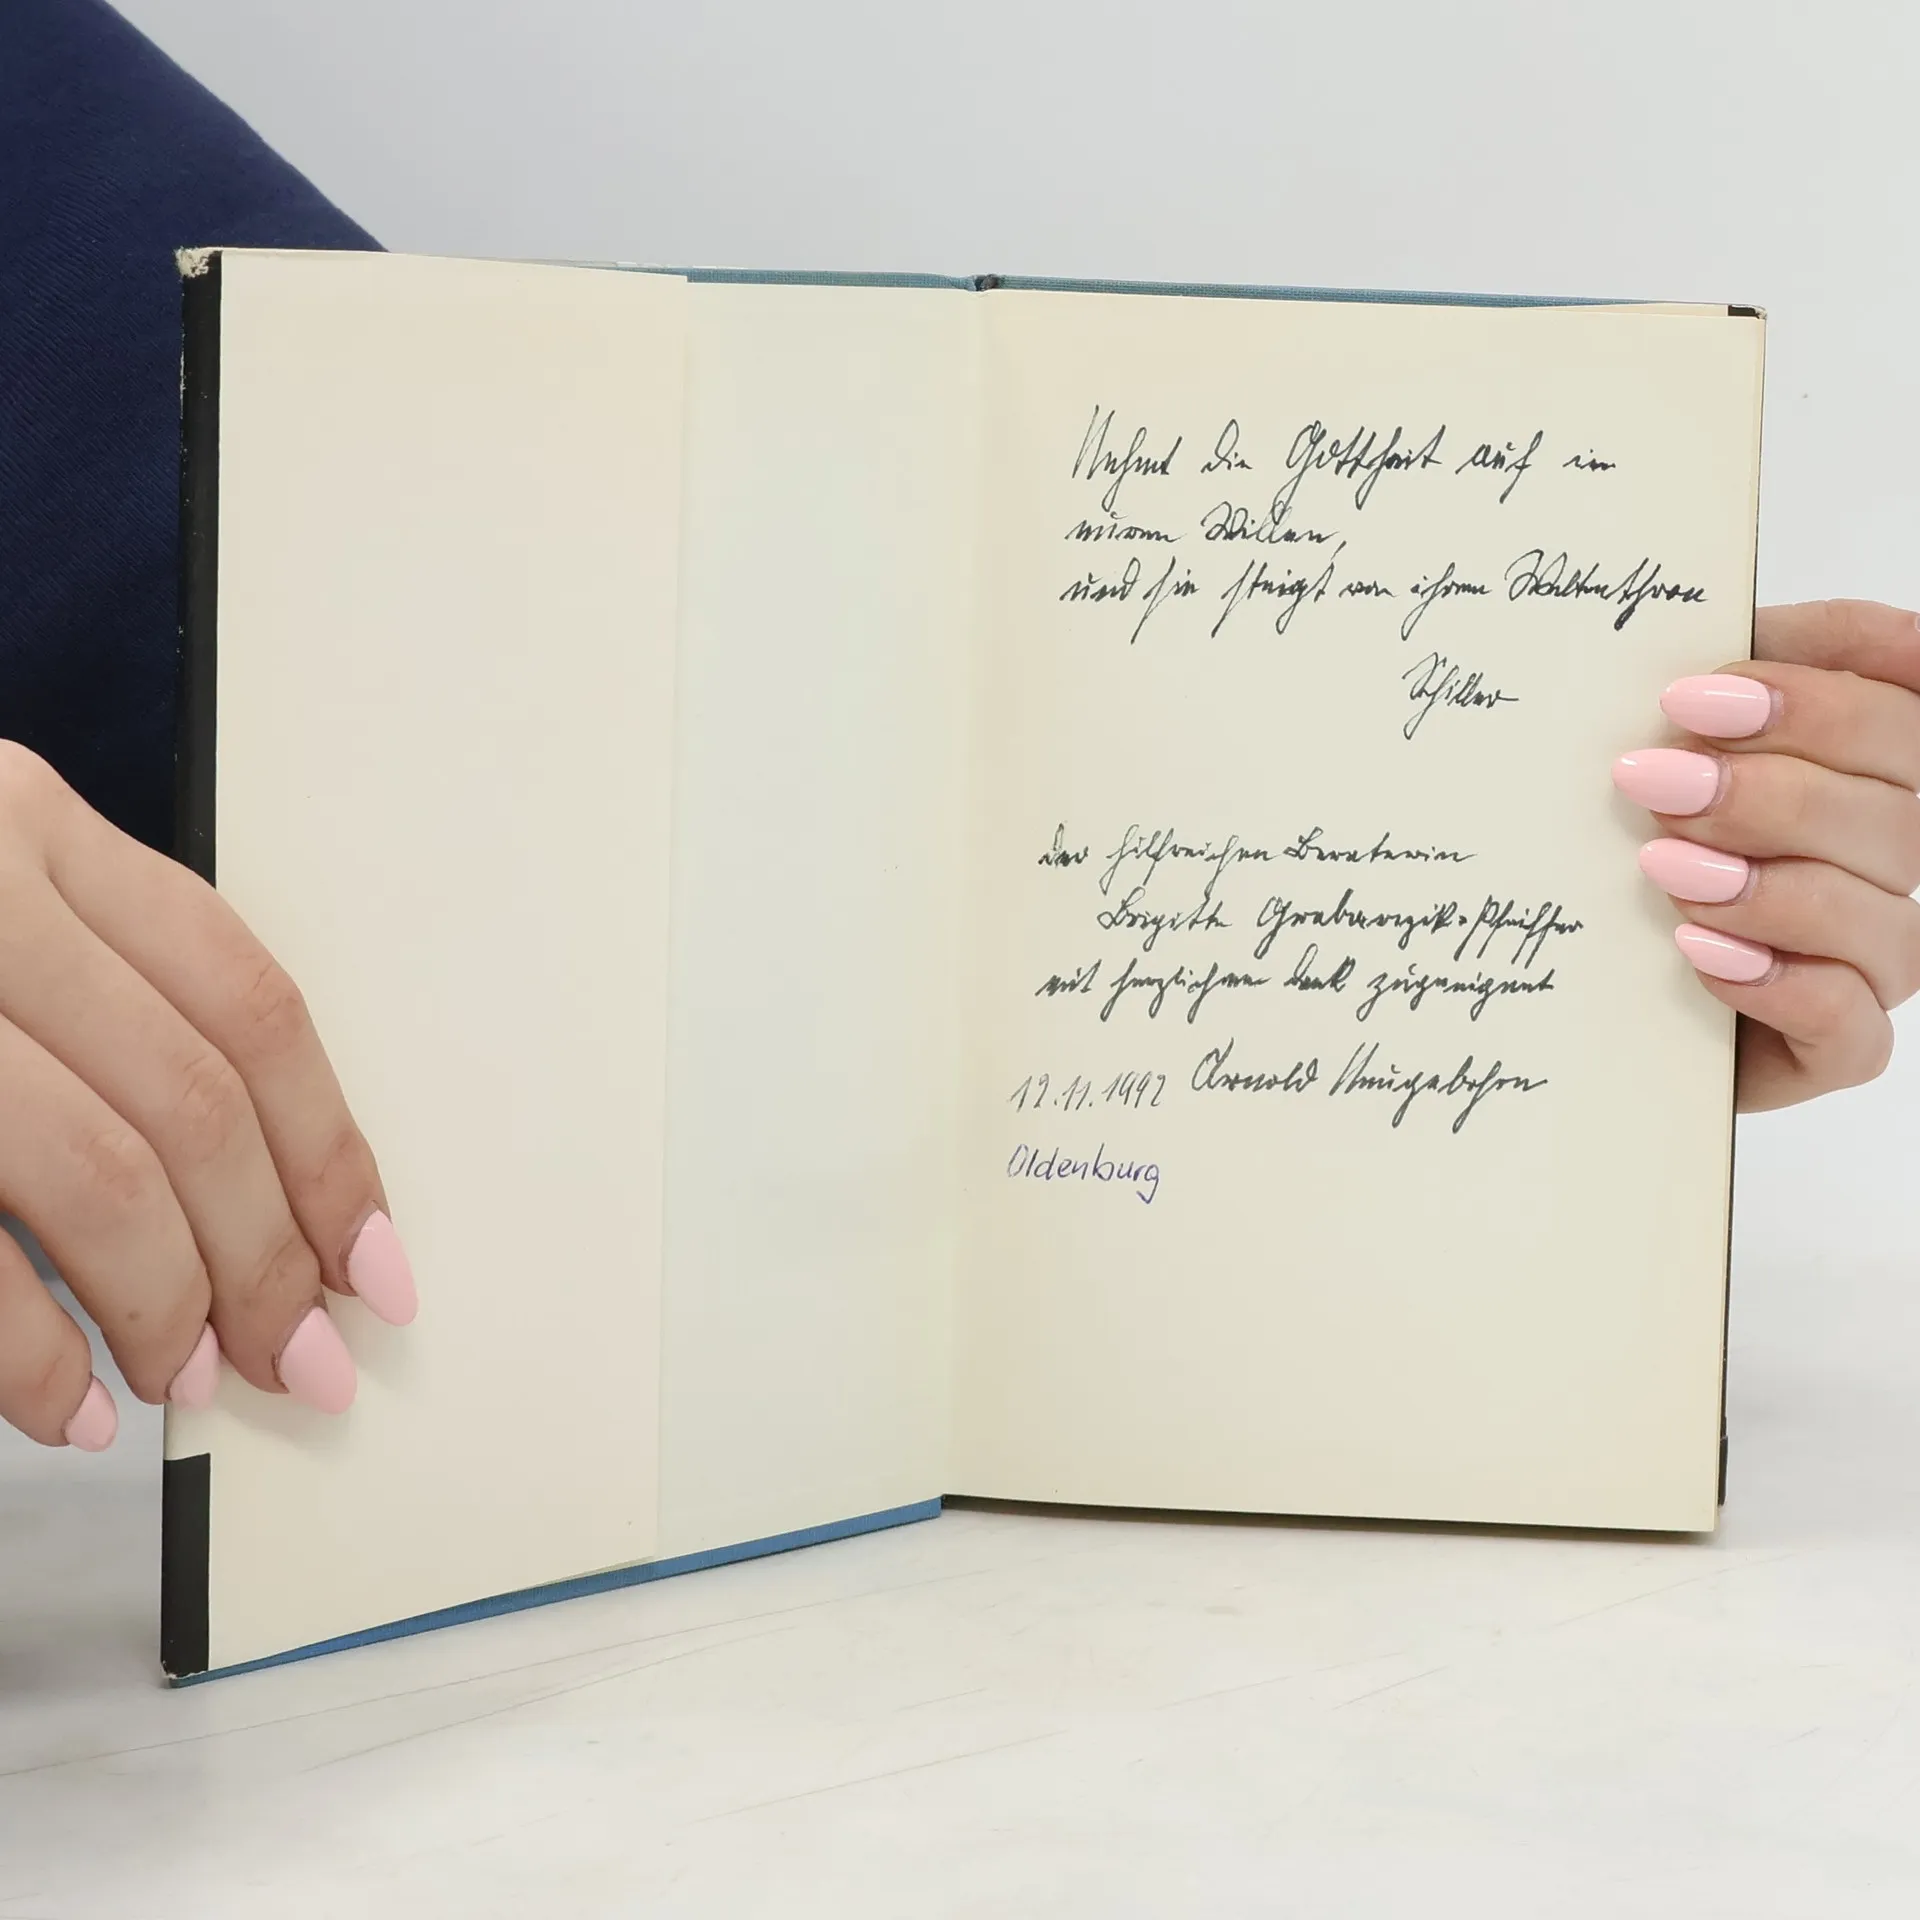 Nehmt die Gottheit auf in
euren Willen,
und sie steigt von ihrem Weltenthron
Schiller
der hilfreichen Beraterin
Brigitte Grabarczik-Pfeiffer
mit herzlichem Dank zugeeignet
12.11.1992 Arnold Neugebohrn
Oldenburg